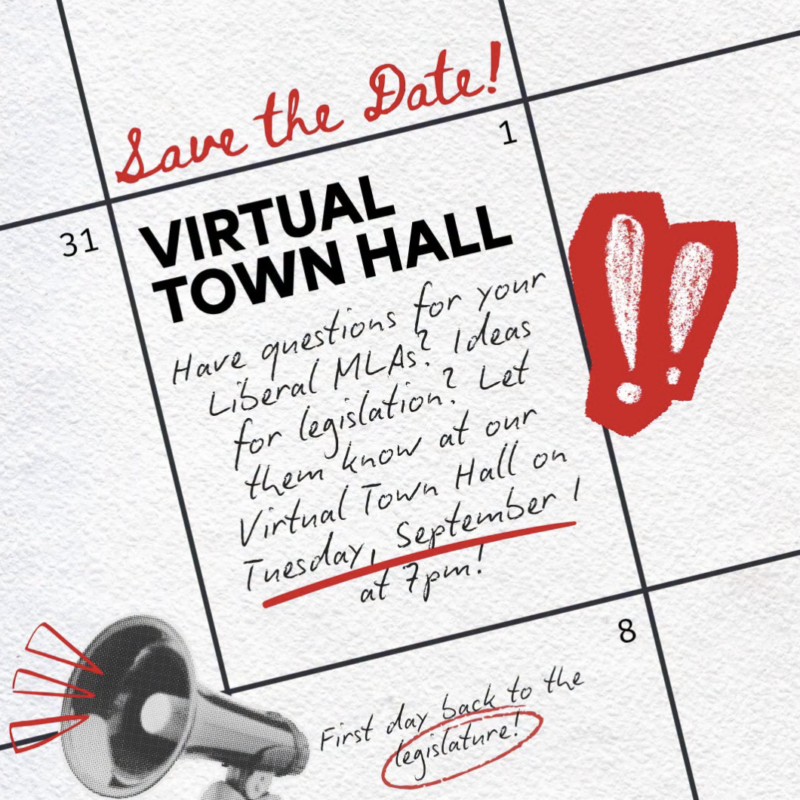 Save the Date!
1
31
VIRTUAL
TOWN HALL
Have questions for your
Liberal MLAs? Ideas
for legislation? Let
them know at our
Virtual Town Hall on
Tuesday, September 1
at 7pm!
8
First day back to the
legislature!